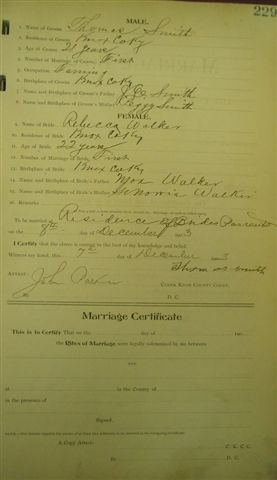 229
MALE.
1. Name of Groom Thomas Smith
2. Residence of Groom Knox Co Ky
3. Age of Groom 21 years
4. Number of Marriage of Groom, First
5. Occupation, Farming
6. Birthplace of Groom Knox Co Ky
7. Name and Birthplace of Groom's Father Smith
8. Name and Birthplace of Groom's Mother Peggy Smith
FEMALE.
9. Name of Bride, Rebecca Walker
10. Residence of Bride, Knox Co Ky
11. Age of Bride 22 years
12. Number of Marriage of Bride First
13. Birthplace of Bride, Knox Co Ky
14. Name and Birthplace of Bride's Father Walker
15. Name and Birthplace of Bride's Mother Walker
16. Remarks
To be married at Residence of Brides Parents
on the 8th day of December 3
I Certify that the above is correct to the best of my knowledge and belief.
Witness my hand, this 7th day of December 3
Thomas Smith
Attest: John Parker
Clerk Knox County Court.
D. C.
Marriage Certificate
This is to Certify That on the day of 190
the Rites of Marriage were legally solemnized by me between
and
at in the County of
in the presence of
Signed,
A Copy Attest: C. K. C. C.
By D. C.